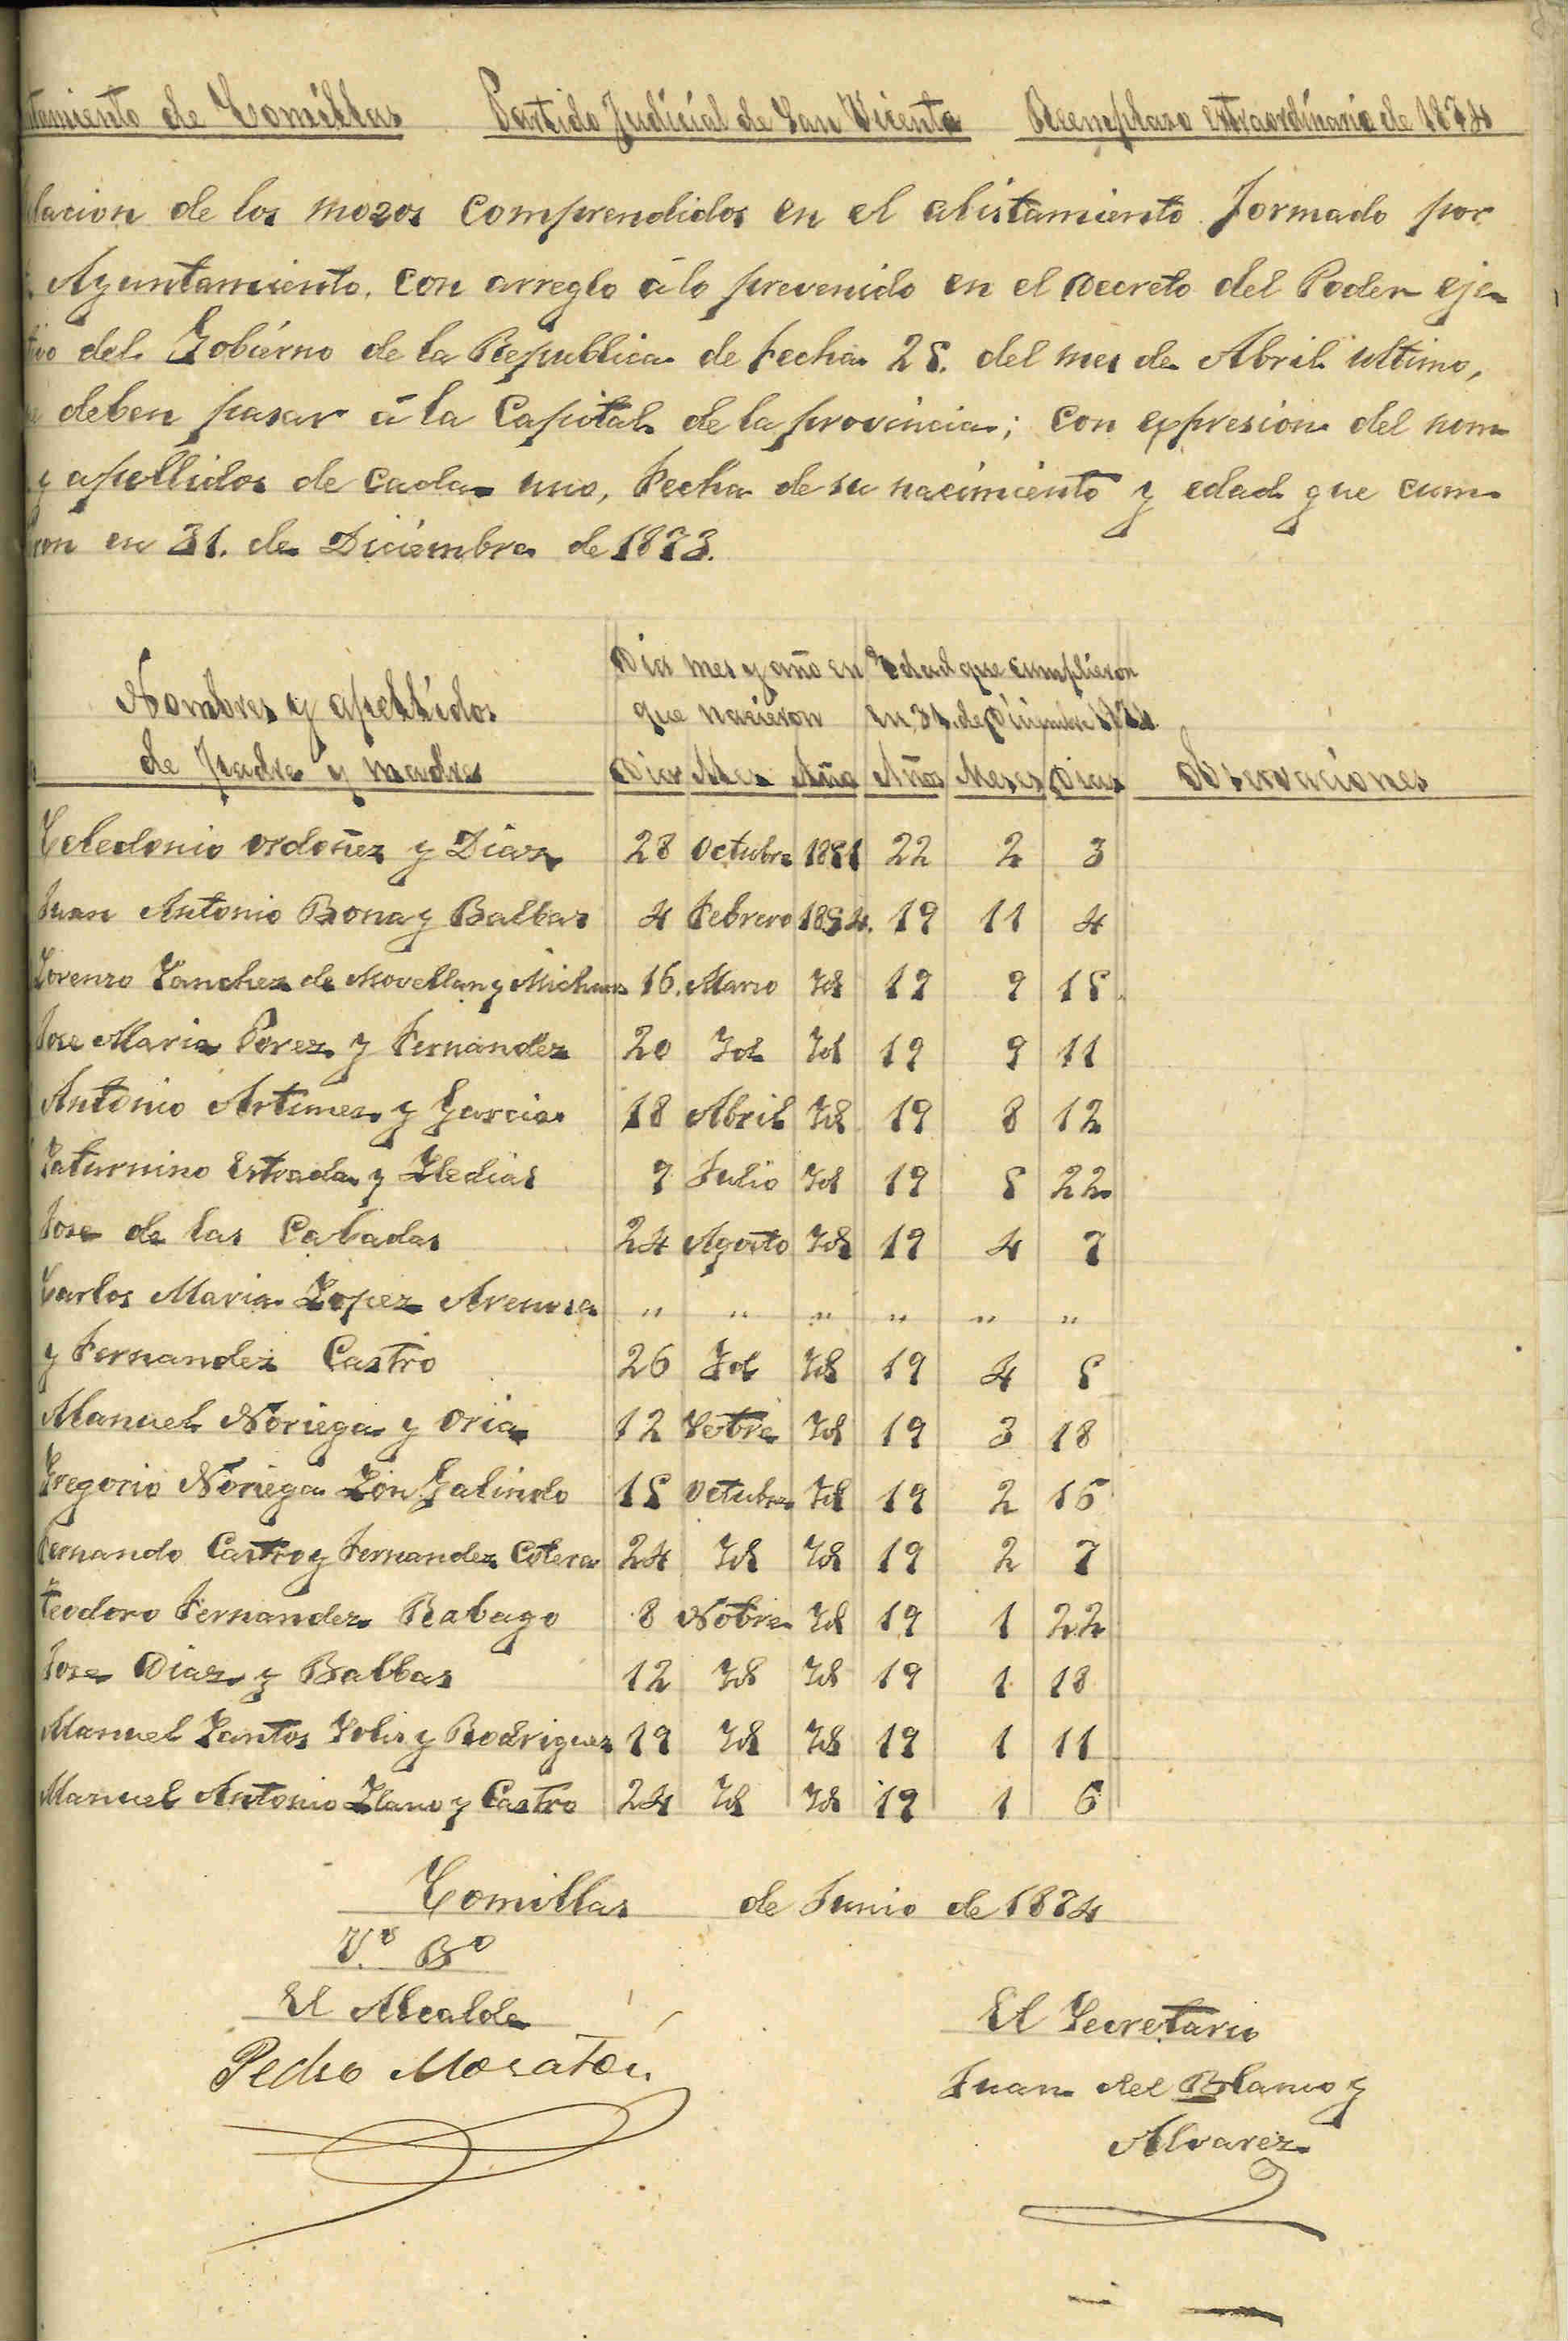 tamiento de Comillas Partido Judicial de San Vicente Reemplazo extraordinario de 1874
lacion de los mozos comprendidos en el alistamiento formado por
Ayuntamiento, con arreglo á lo prevenido en el decreto del Poder eje-
tivo del Gobierno de la Republica de fecha 25. del mes de Abril ultimo,
deben pasar á la Capital de la provincia; con expresion del nom-
y apellidos de cada uno, fecha de su nacimiento y edad que cum-
ron en 31. de Diciembre de 1873.
Nombres y apellidos de padre y madre
Dia mes y año en que nacieron
Edad que cumplieron en 31. de Diciembre 1874
Dia Mes Año Años Meses Dias Observaciones
Celedonio Ordoñez y Diaz 28 Octubre 1851 22 2 3
Juan Antonio Bona y Balbas 4 Febrero 1854. 19 11 4
Lorenzo Sanchez de Movellan y 16. Marzo Id 19 9 15
Jose Maria Perez y Fernandez 20 Id Id 19 9 11
Antonio Artimez y Garcia 18 Abril Id 19 8 12
Saturnino Estrada y Iledias 9 Julio Id 19 5 22
Jose de las Cabadas 24 Agosto Id 19 4 7
Carlos Maria Lopez Arenosa " " " " " "
y Fernandez Castro 26 Id Id 19 4 5
Manuel Noriega y Oria 12 Setbre Id 19 3 18
Gregorio Noriega Zon Galindo 15 Octubre Id 19 2 16
Fernando Castro y Fernandez Cotera 24 Id Id 19 2 7
Teodoro Fernandez Rabago 8 Nobre Id 19 1 22
Jose Diaz y Balbas 12 Id Id 19 1 18
Manuel Santos Solis y Rodriguez 19 Id Id 19 1 11
Manuel Antonio Llano y Castro 24 Id Id 19 1 6
Comillas de Junio de 1874
V.º Bº
El Alcalde
Pedro Moraton
El Secretario
Juan del Blanco y
Alvarez